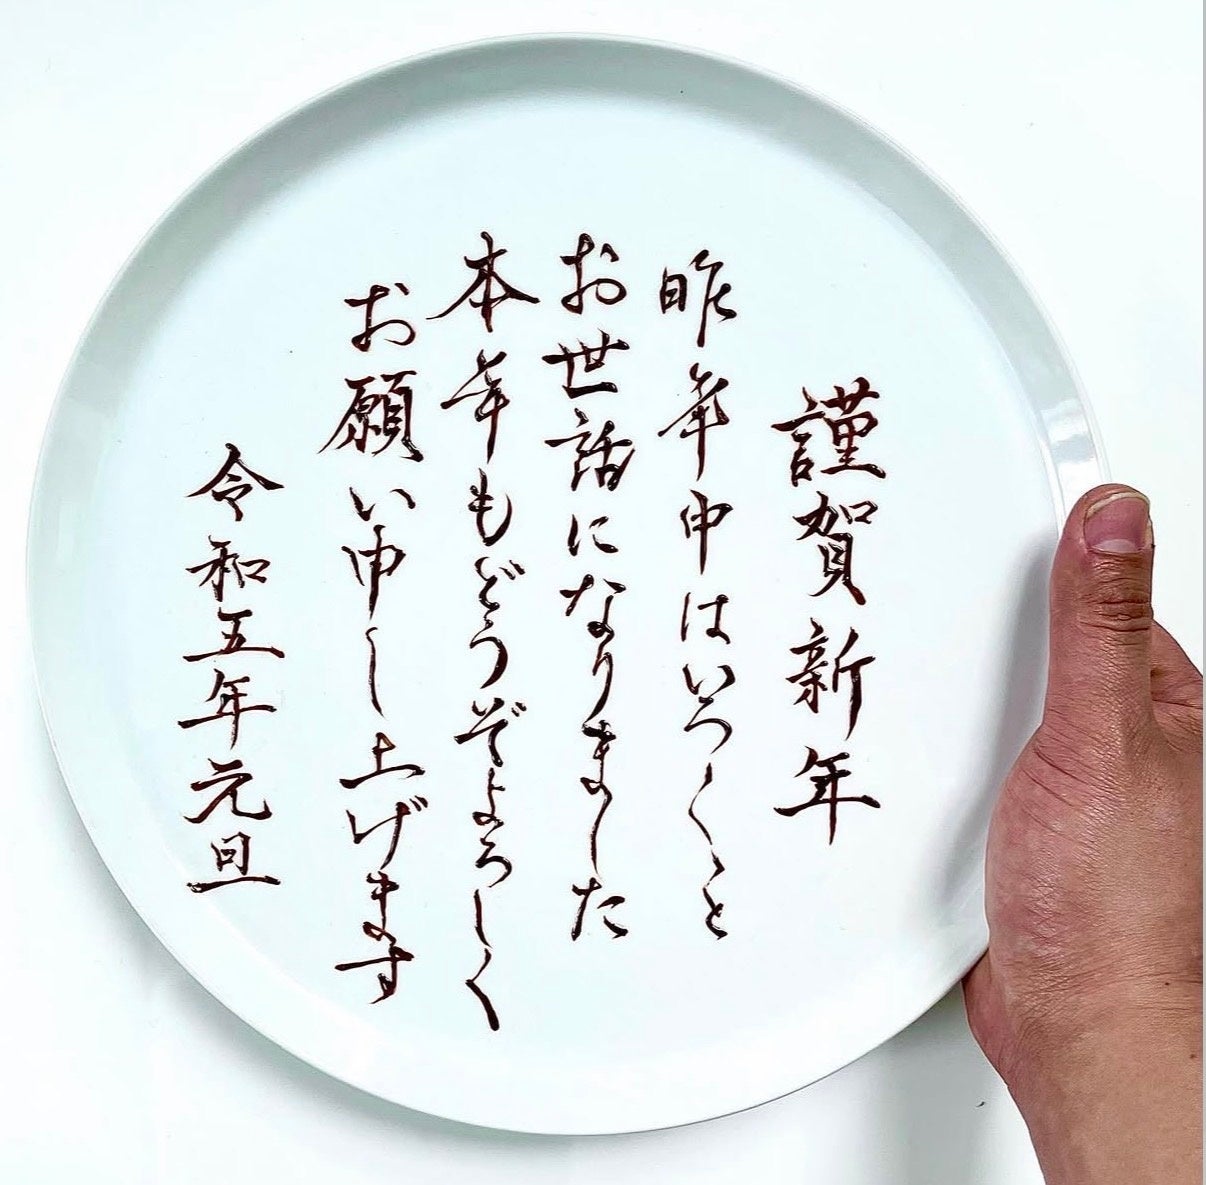 謹賀新年
昨年中はいろ〱と
お世話になりました
本年もどうぞよろしく
お願い申し上げます
令和五年元旦